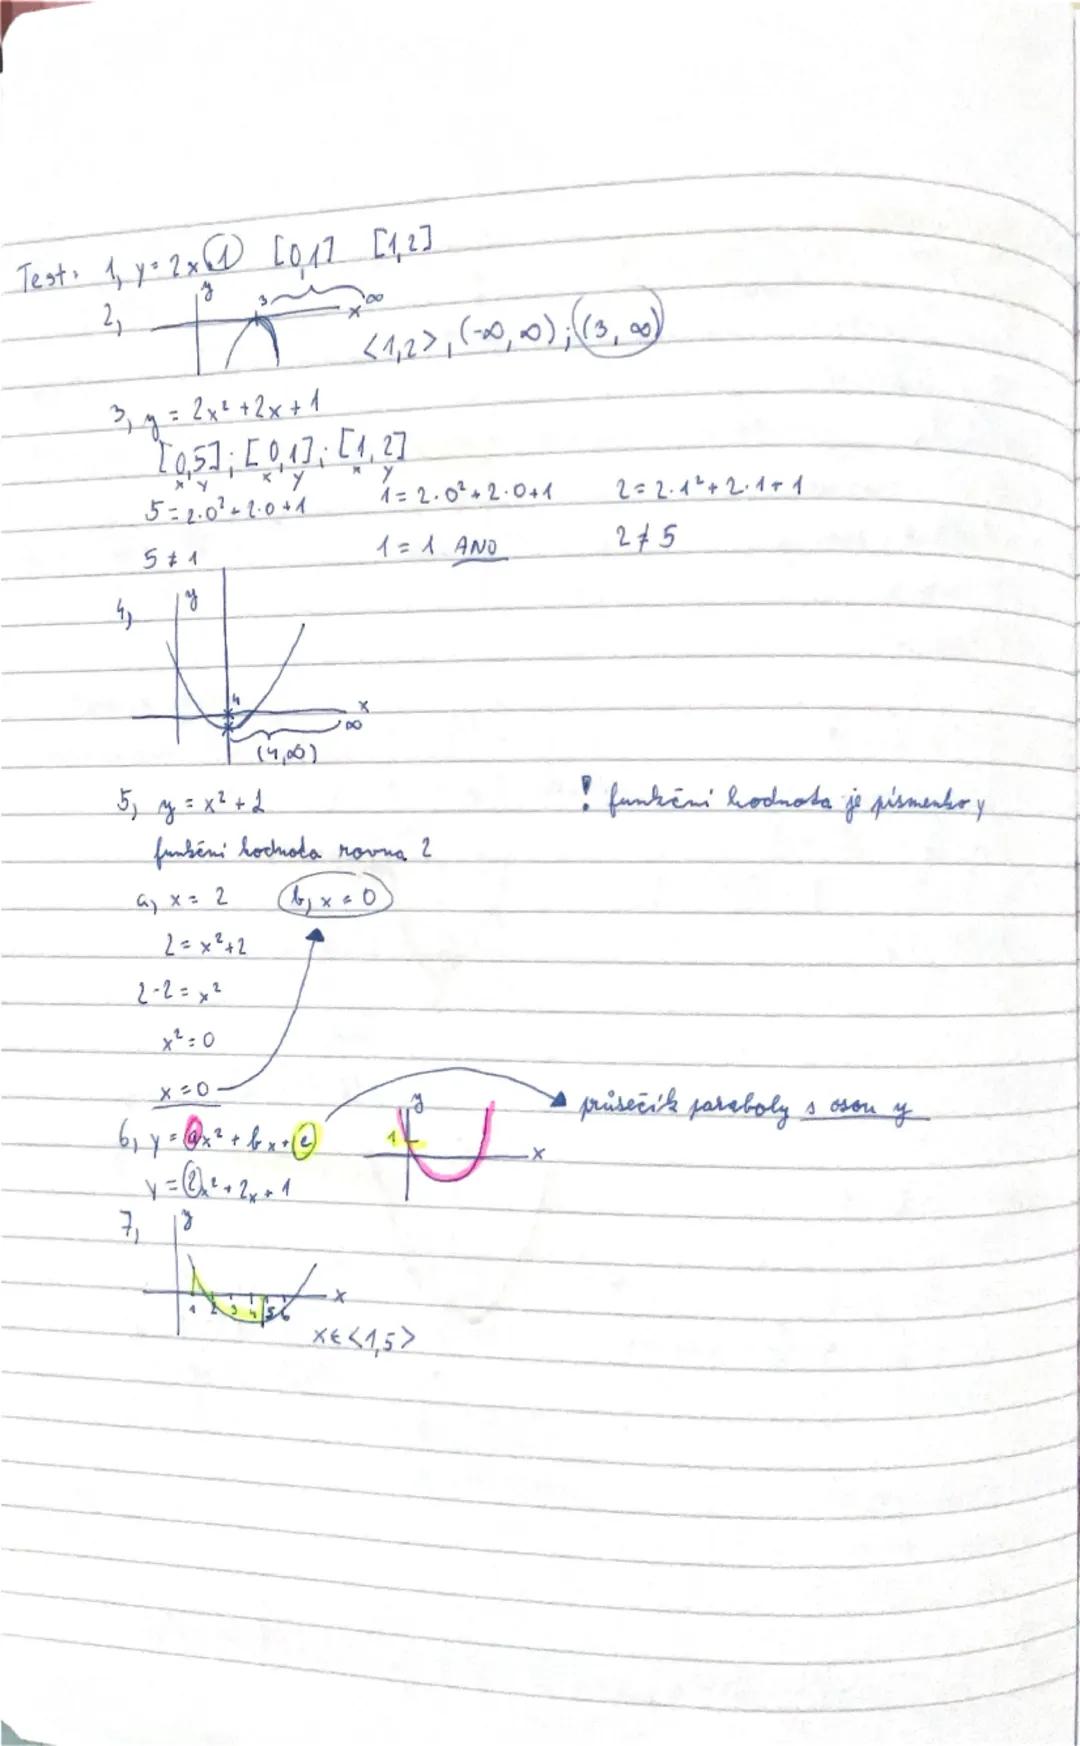 Test: 1, y = 2x 1 [0,1] [1,2]
2, y 3 ∞ x
<1,2>, (-∞, ∞); (3, ∞)
3, y = 2x² + 2x + 1
[0,5]; [0,1]; [1,2]
x y x y x y
5 = 2·0² + 2·0 + 1 1 = 2·0² + 2·0+1 2 = 2·1² + 2·1 + 1
5 ≠ 1 1 = 1 ANO 2 ≠ 5
4, y
4 x
∞
(4,∞)
5, y = x² + 2 ! funkční hodnota je písmenko y
funkční hodnota rovna 2
a, x = 2 b, x = 0
2 = x²+2
2-2 = x²
x² = 0
x = 0
y průsečík paraboly s osou y
6, y = ax² + bx + c 1 x
y = 2x² + 2x + 1
7, y
x
1 2 3 4 5 6
x∈<1,5>